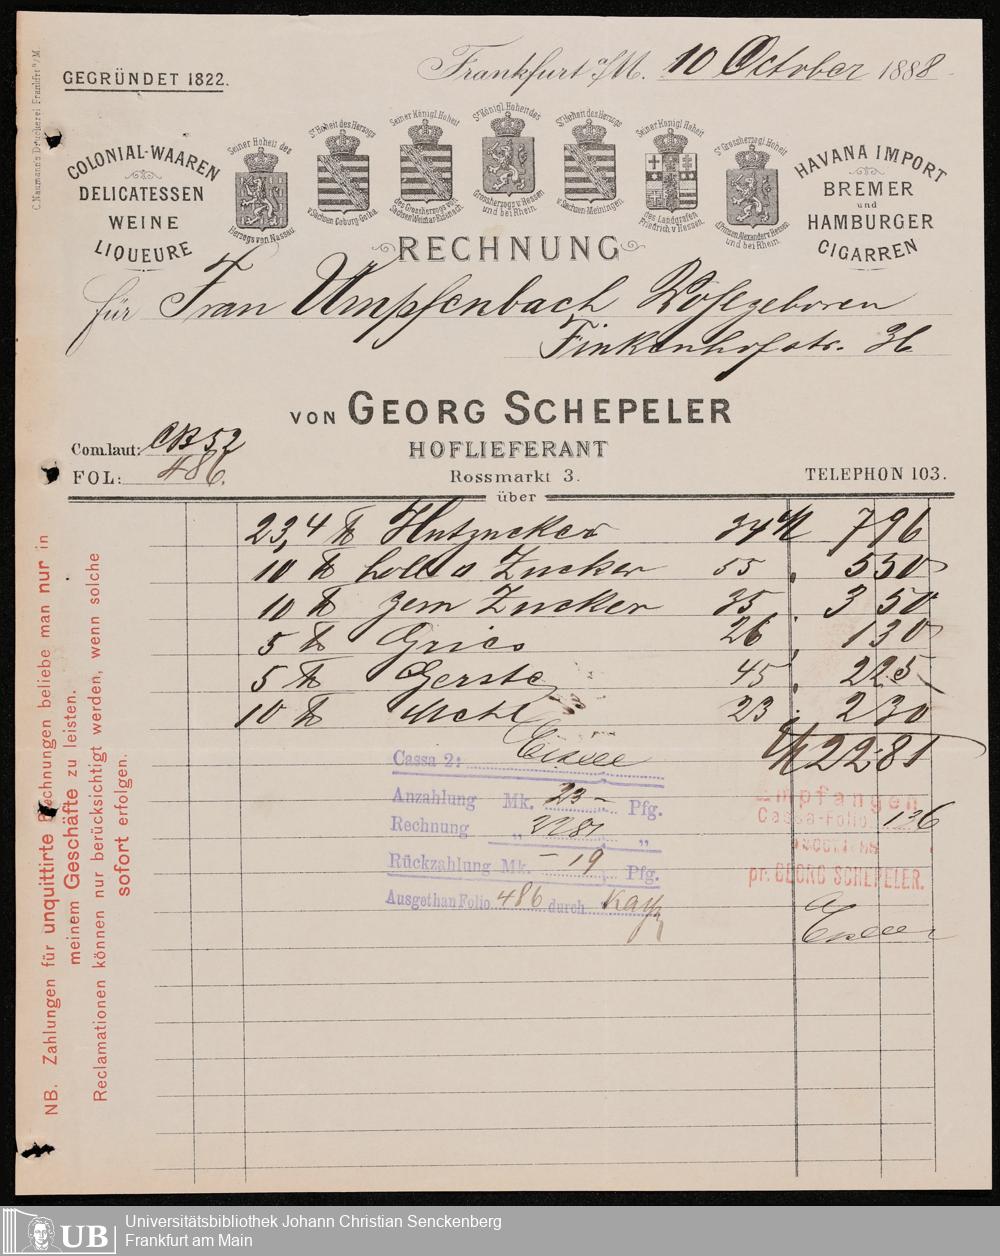 C. Naumann's Druckerei Frankfurt a/M.
GEGRÜNDET 1822.
Frankfurt a/M. 10 October 1888
COLONIAL-WAAREN
DELICATESSEN
WEINE
LIQUEURE
Seiner Hoheit des
Herzogs von Nassau
Sr. Hoheit des Herzogs
v. Sachsen Coburg-Gotha.
Seiner Königl. Hoheit
des Grossherzogs von
Sachsen Weimar-Eisenach.
Sr. Königl. Hoheit des
Grossherzogs v. Hessen
und bei Rhein.
Sr. Hoheit des Herzogs
v. Sachsen-Meiningen.
Seiner Königl. Hoheit
des Landgrafen
Friedrich v. Hessen.
Sr. Grossherzogl. Hoheit
d. Prinzen Alexander v. Hessen
und bei Rhein.
HAVANA IMPORT
BREMER
und
HAMBURGER
CIGARREN
RECHNUNG
für Frau Umpfenbach Wohlgeboren
Finkenhofstr. 36
VON GEORG SCHEPELER
HOFLIEFERANT
Rossmarkt 3.
TELEPHON 103.
Com.laut: CB 52
FOL: 486.
über
23,4 ℔ Hutzucker 34 ₰ 7 96
10 ℔ holl. Zucker 55 5 50
10 ℔ gem Zucker 35 3 50
5 ℔ Gries 26 1 30
5 ℔ Gerste 45 2 25
10 ℔ Mehl 23 2 30
ℳ 22 81
Cassa 2:
Anzahlung Mk. 23 – Pfg.
Rechnung „ 22 81 „
Rückzahlung Mk. – 19 Pfg.
Ausgethan Folio 486 durch
Empfangen
Cassa-Folio 136
pr. GEORG SCHEPELER.
NB. Zahlungen für unquittirte Rechnungen beliebe man nur in
meinem Geschäfte zu leisten.
Reclamationen können nur berücksichtigt werden, wenn solche
sofort erfolgen.
UB
Universitätsbibliothek Johann Christian Senckenberg
Frankfurt am Main